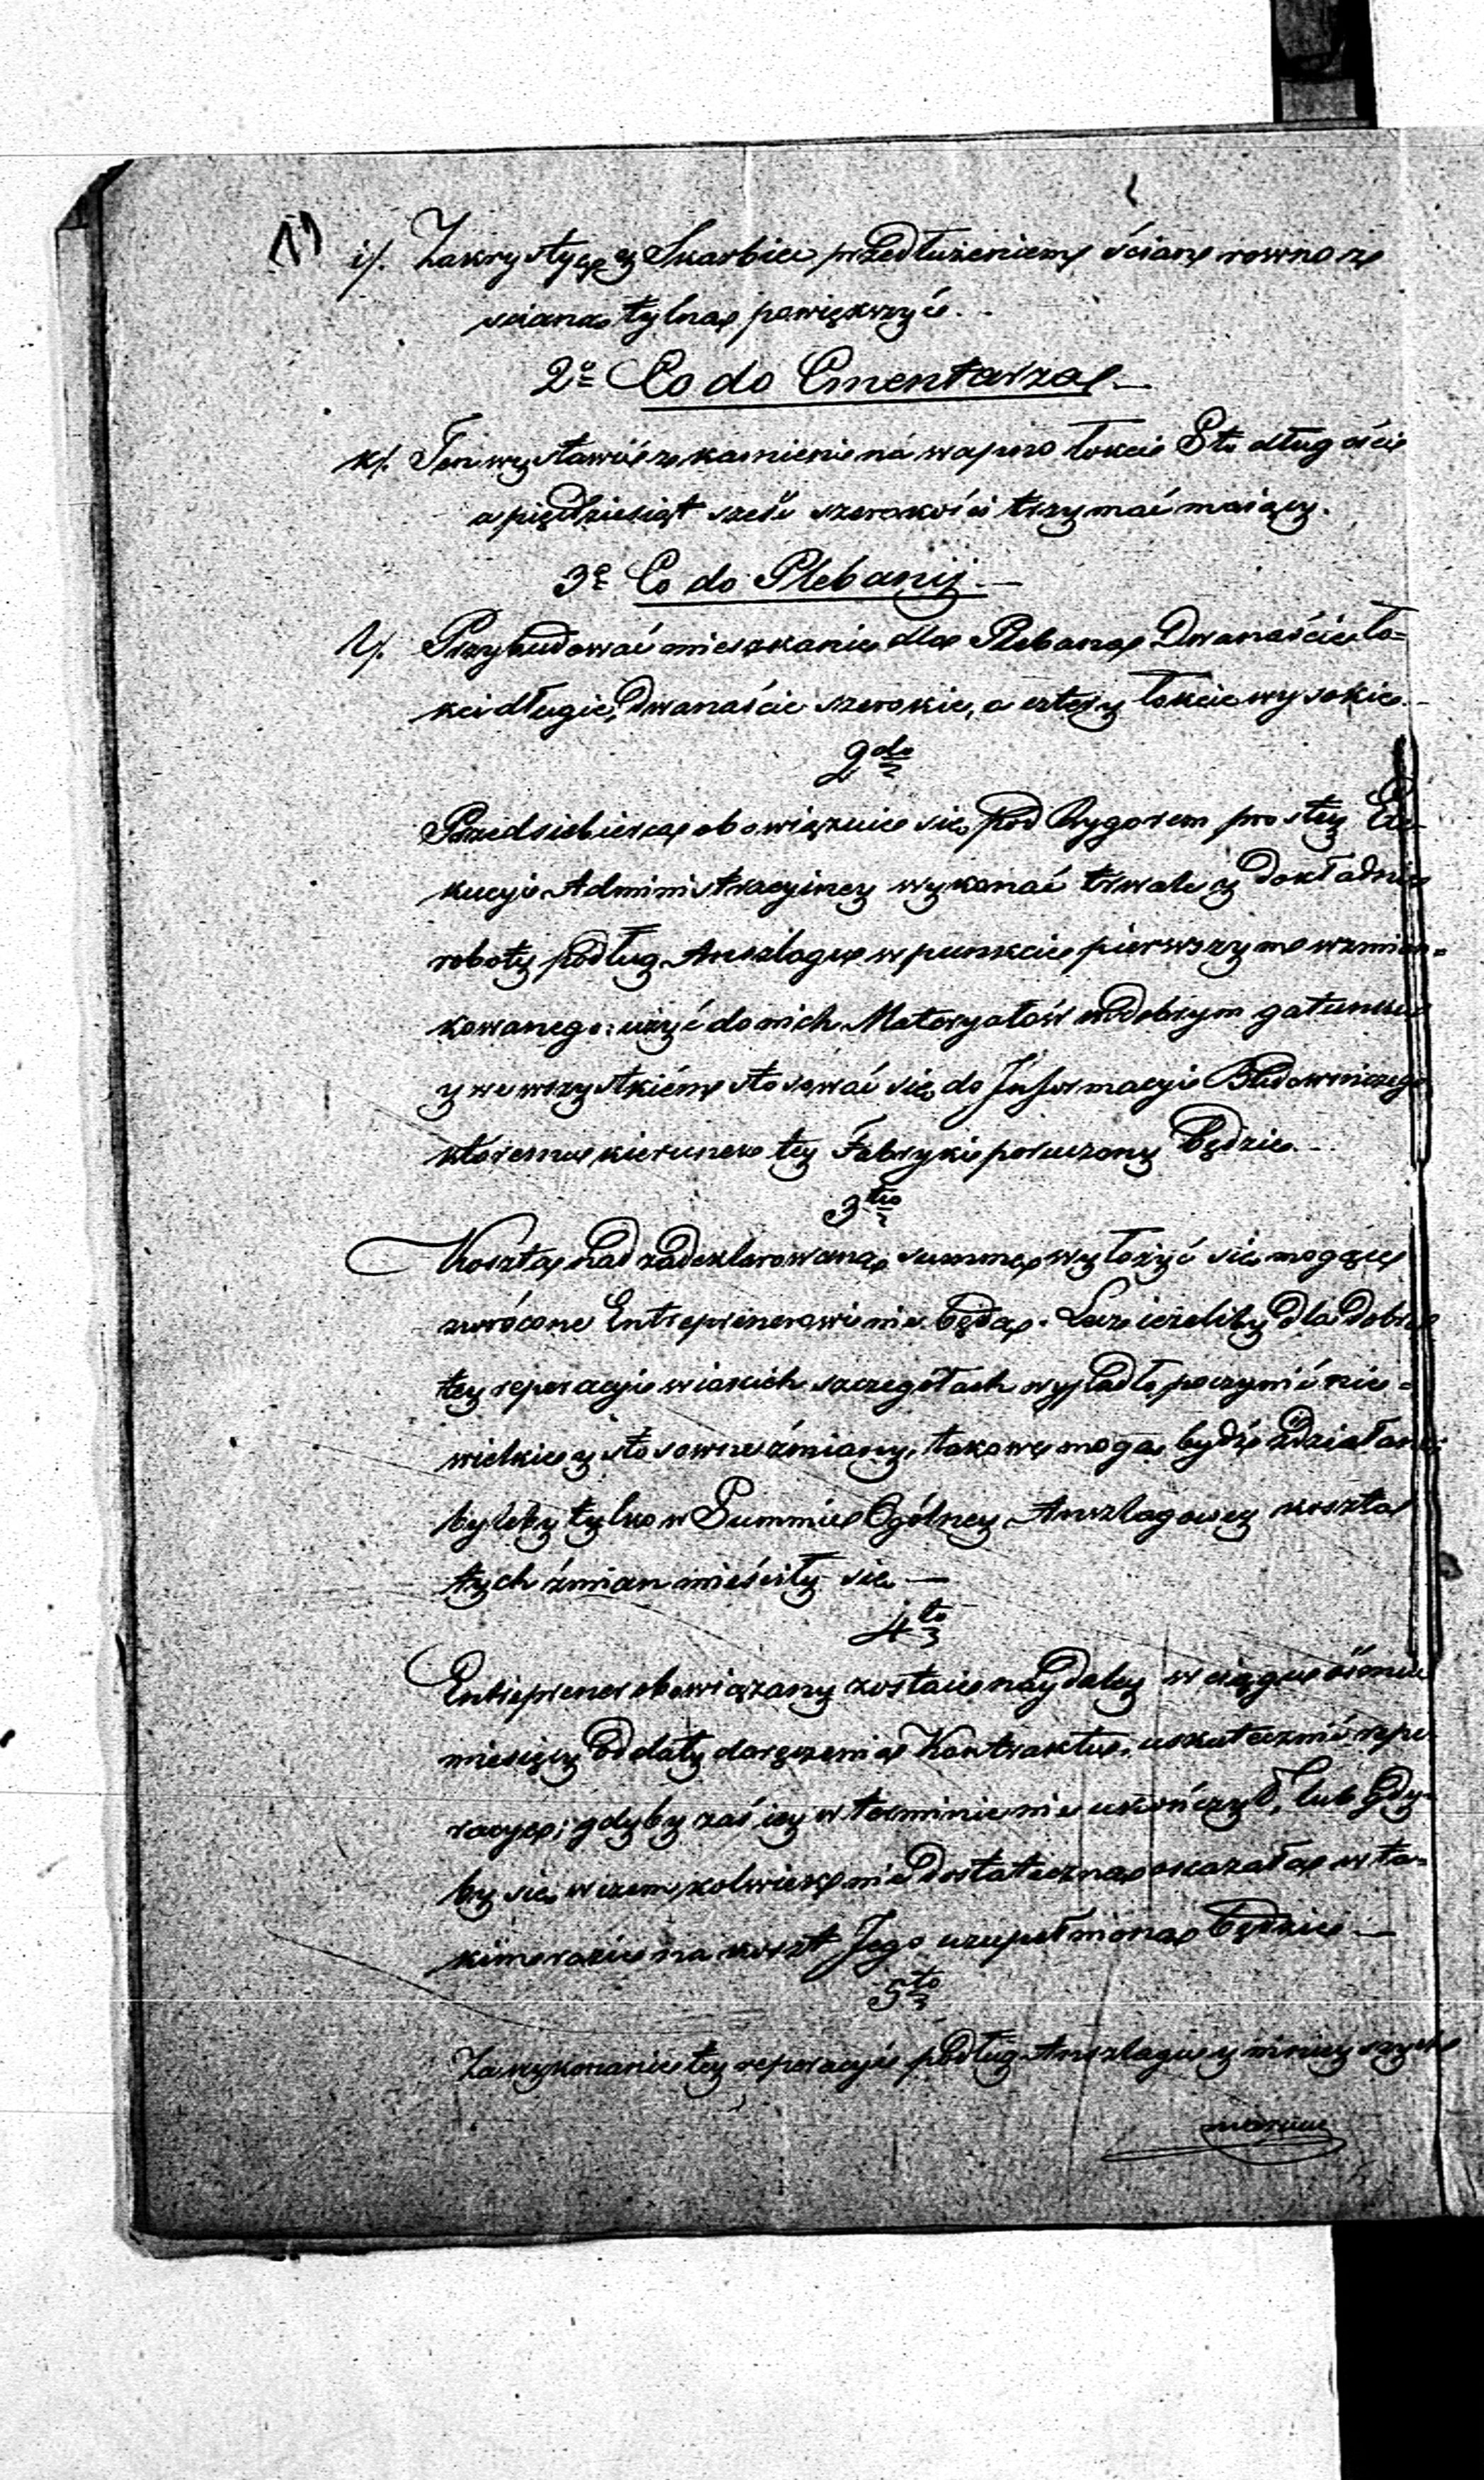 i/. Zakrystyę y Skarbiec przedłużeniem ścian rowno ze
scianą tylną powiększyć.
2º Co do Cmentarza —
k/. Ten wystawić z kamienia na wapno łokcie Sto długości
a pięćdziesiąt sześć szerokości trzymać maiący.
3º Co do Plebanij. —
l/. Przybudować mieszkanie dla Plebana Dwanaście ło=
kci długie, dwanaście szerokie, a cztery łokcie wysokie. —
2do
Przedsiebierca obowiązuie się pod Rygorem prostey Exe-
kucyi Administracyiney wykonać trwale y dokładnie
roboty podług Anszlagu w punkcie pierwszym wzmian=
kowanego: użyć do nich Materyałów w dobrym gatunku
y we wszystkiém stosować się do Informacyi Budowniczego
któremu kierunek tey Fabryki poruczony będzie. —
3tio
Koszta nad zadeklarowaną summę wyłożyć się mogące
zwrócone Entreprenerowi nie będą. Lecz ieżeliby dla dobra
tey reperacyi w iakich szczegółach wypadło poczynić nie=
wielkie y stosowne zmiany, takowe mogą bydź zdziałane
byleby tylko w Summie Ogólney Anszlagowey koszta
tych zmian mieściły się —
4to
Entreprener obowiązany zostaie naydaley w ciągu ośmiu
miesięcy od daty doręczenia Kontraktu, uskutecznić repe-
racyę; gdyby zaś iey w terminie nie ukończył, lub gdy-
by się w czemkolwiek niedostateczna okazała w ta=
kim razie na koszt Jego uzupełniona będzie —
5to
Za wykonanie tey reperacyi podług Anszlagu y ninieyszych